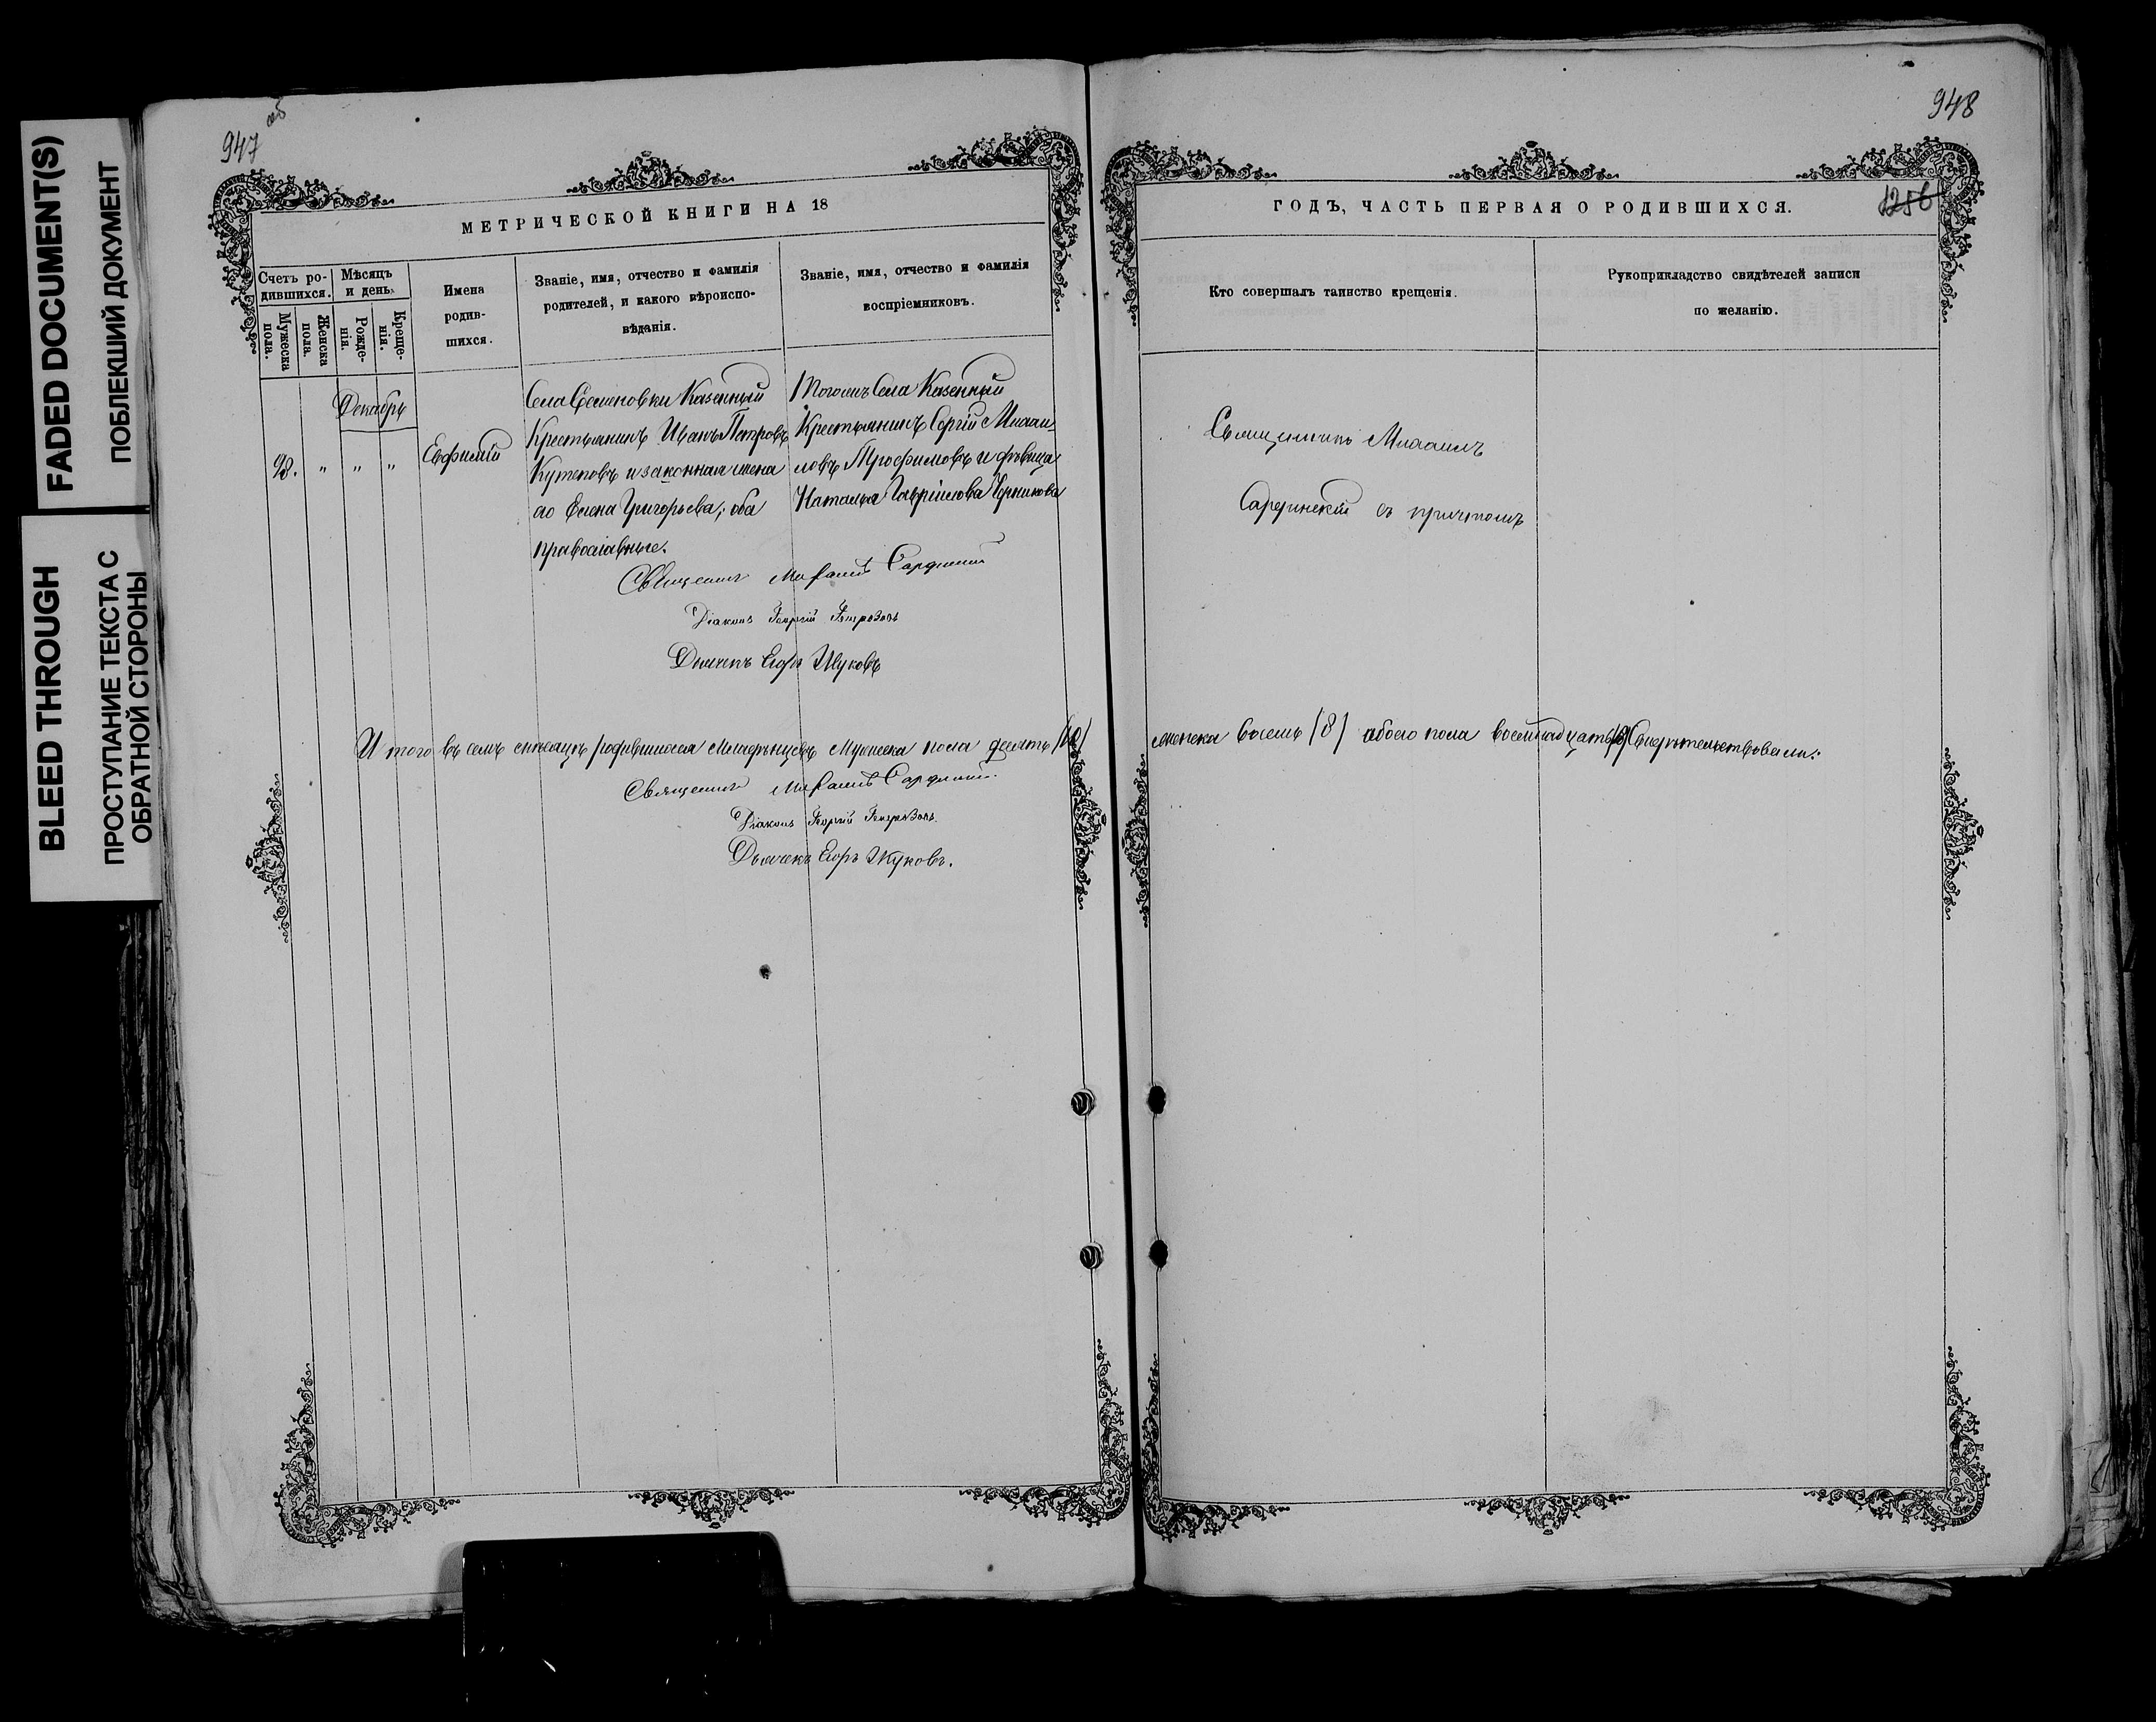 FADED DOCUMENT(S)
ПОБЛЕКШИЙ ДОКУМЕНТ
BLEED THROUGH
ПРОСТУПАНИЕ ТЕКСТА С
ОБРАТНОЙ СТОРОНЫ
947 об
МЕТРИЧЕСКОЙ КНИГИ НА 18
Счетъ ро-
дившихся.
Мужеска
пола.
Женска
пола.
Мѣсяцъ
и день.
Рожде-
нія.
Креще-
нія.
Имена
родив-
шихся.
Званіе, имя, отчество и фамилія
родителей, и какого вѣроиспо-
вѣданія.
Званіе, имя, отчество и фамилія
воспріемниковъ.
Декабрь
98. " " "
Евфимій
Села Семеновки Казенный
Крестьянинъ Иванъ Петровъ
Кутеповъ и законная жена
его Елена Григорьева; оба
православные.
Тогожъ Села Казенный
Крестьянинъ Сергій Михаи
ловъ Трофимовъ и дѣвица
Наталья Гавріилова
Священникъ Михаилъ
Діаконъ Георгій
Дьячекъ Егоръ Жуковъ
И того въ семъ мѣсяцѣ родившихся Младѣнцевъ Мужеска пола десять /10/
Священникъ Михаилъ
Діаконъ Георгій
Дьячекъ Егоръ Жуковъ.
948
1256
ГОДЪ, ЧАСТЬ ПЕРВАЯ О РОДИВШИХСЯ.
Кто совершалъ таинство крещенія.
Рукоприкладство свидѣтелей записи
по желанію.
Священникъ Михаилъ
съ причтомъ
женска восемь /8/ обоего пола восемнадцать /18/ Свидѣтельствовали: